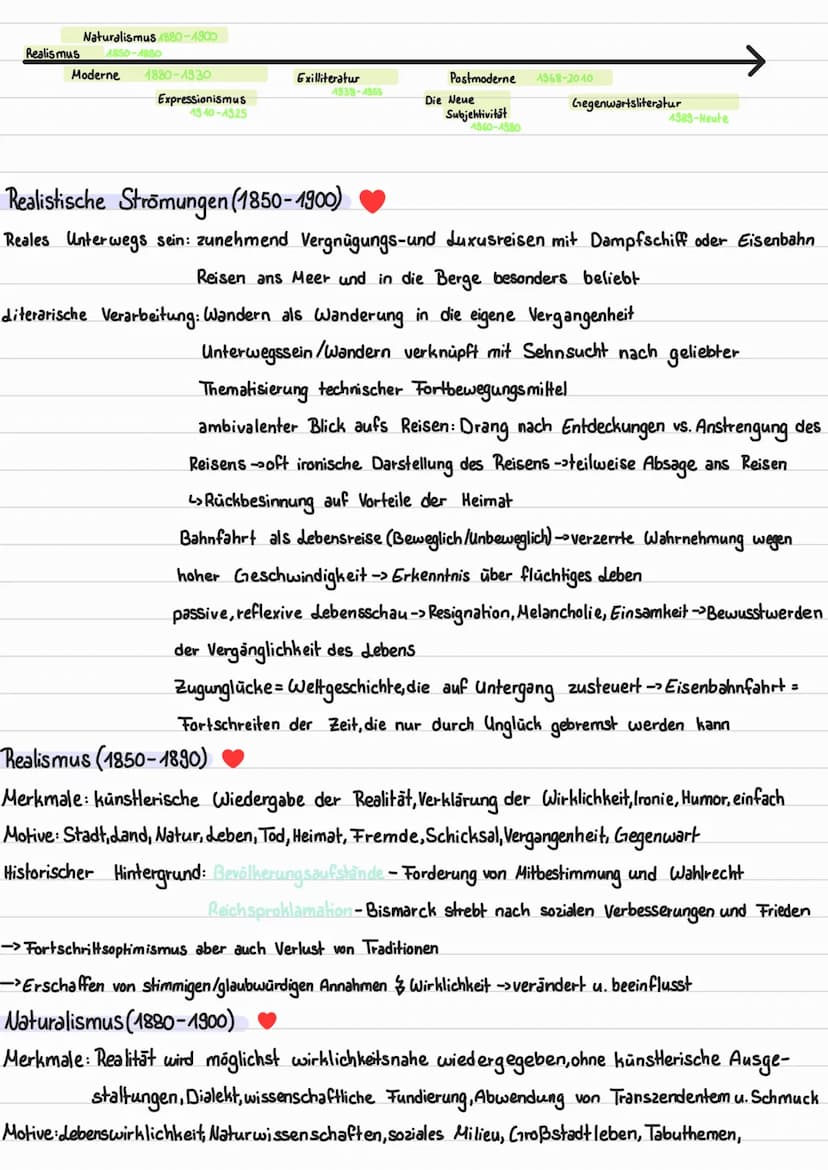 Naturalismus 1880-1900
Realismus 1850-1880
Moderne 1880-1930
Exilliteratur
Postmoderne 1968-2010
Expressionismus
1910-1925
Die Neue
Subjektivität
1960-1980
Gegenwartsliteratur
1989-Heute
Realistische Strömungen (1850-1900) ❤
Reales Unterwegs sein: zunehmend Vergnügungs-und Luxusreisen mit Dampfschiff oder Eisenbahn
Reisen ans Meer und in die Berge besonders beliebt
Literarische Verarbeitung: Wandern als Wanderung in die eigene Vergangenheit
Unterwegssein/Wandern verknüpft mit Sehnsucht nach geliebter
Thematisierung technischer Fortbewegungsmittel
ambivalenter Blick aufs Reisen: Drang nach Entdeckungen vs. Anstrengung des
Reisens → oft ironische Darstellung des Reisens → teilweise Absage ans Reisen
↳ Rückbesinnung auf Vorteile der Heimat
Bahnfahrt als Lebensreise (Beweglich/Unbeweglich) → verzerrte Wahrnehmung wegen
hoher Geschwindigkeit → Erkenntnis über flüchtiges Leben
passive, reflexive Lebensschau → Resignation, Melancholie, Einsamkeit → Bewusstwerden
der Vergänglichkeit des Lebens
Zugunglücke = Weltgeschichte, die auf Untergang zusteuert → Eisenbahnfahrt =
Fortschreiten der Zeit, die nur durch Unglück gebremst werden kann
Realismus (1850-1890) ❤
Merkmale: künstlerische Wiedergabe der Realität, Verklärung der Wirklichkeit, Ironie, Humor, einfach
Motive: Stadt, Land, Natur, Leben, Tod, Heimat, Fremde, Schicksal, Vergangenheit, Gegenwart
Historischer Hintergrund: Bevölkerungsaufstände - Forderung von Mitbestimmung und Wahlrecht
Reichsproklamation - Bismarck strebt nach sozialen Verbesserungen und Frieden
→ Fortschrittsoptimismus aber auch Verlust von Traditionen
→ Erschaffen von stimmigen/glaubwürdigen Annahmen ↯ Wirklichkeit → verändert u. beeinflusst
Naturalismus (1880-1900) ❤
Merkmale: Realität wird möglichst wirklichkeitsnahe wiedergegeben, ohne künstlerische Ausge-
staltungen, Dialekt, wissenschaftliche Fundierung, Abwendung von Transzendentem u. Schmuck
Motive: Lebenswirklichkeit, Naturwissenschaften, soziales Milieu, Großstadtleben, Tabuthemen,